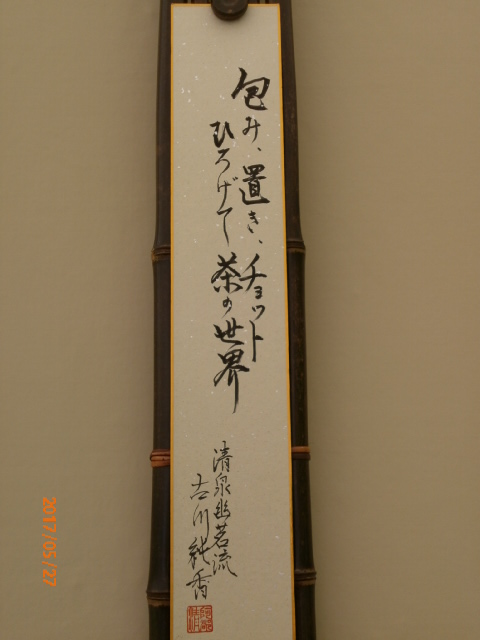 包み、置き、チョット
ひろげて茶の世界
清泉幽茗流
古川純香
2017/05/27